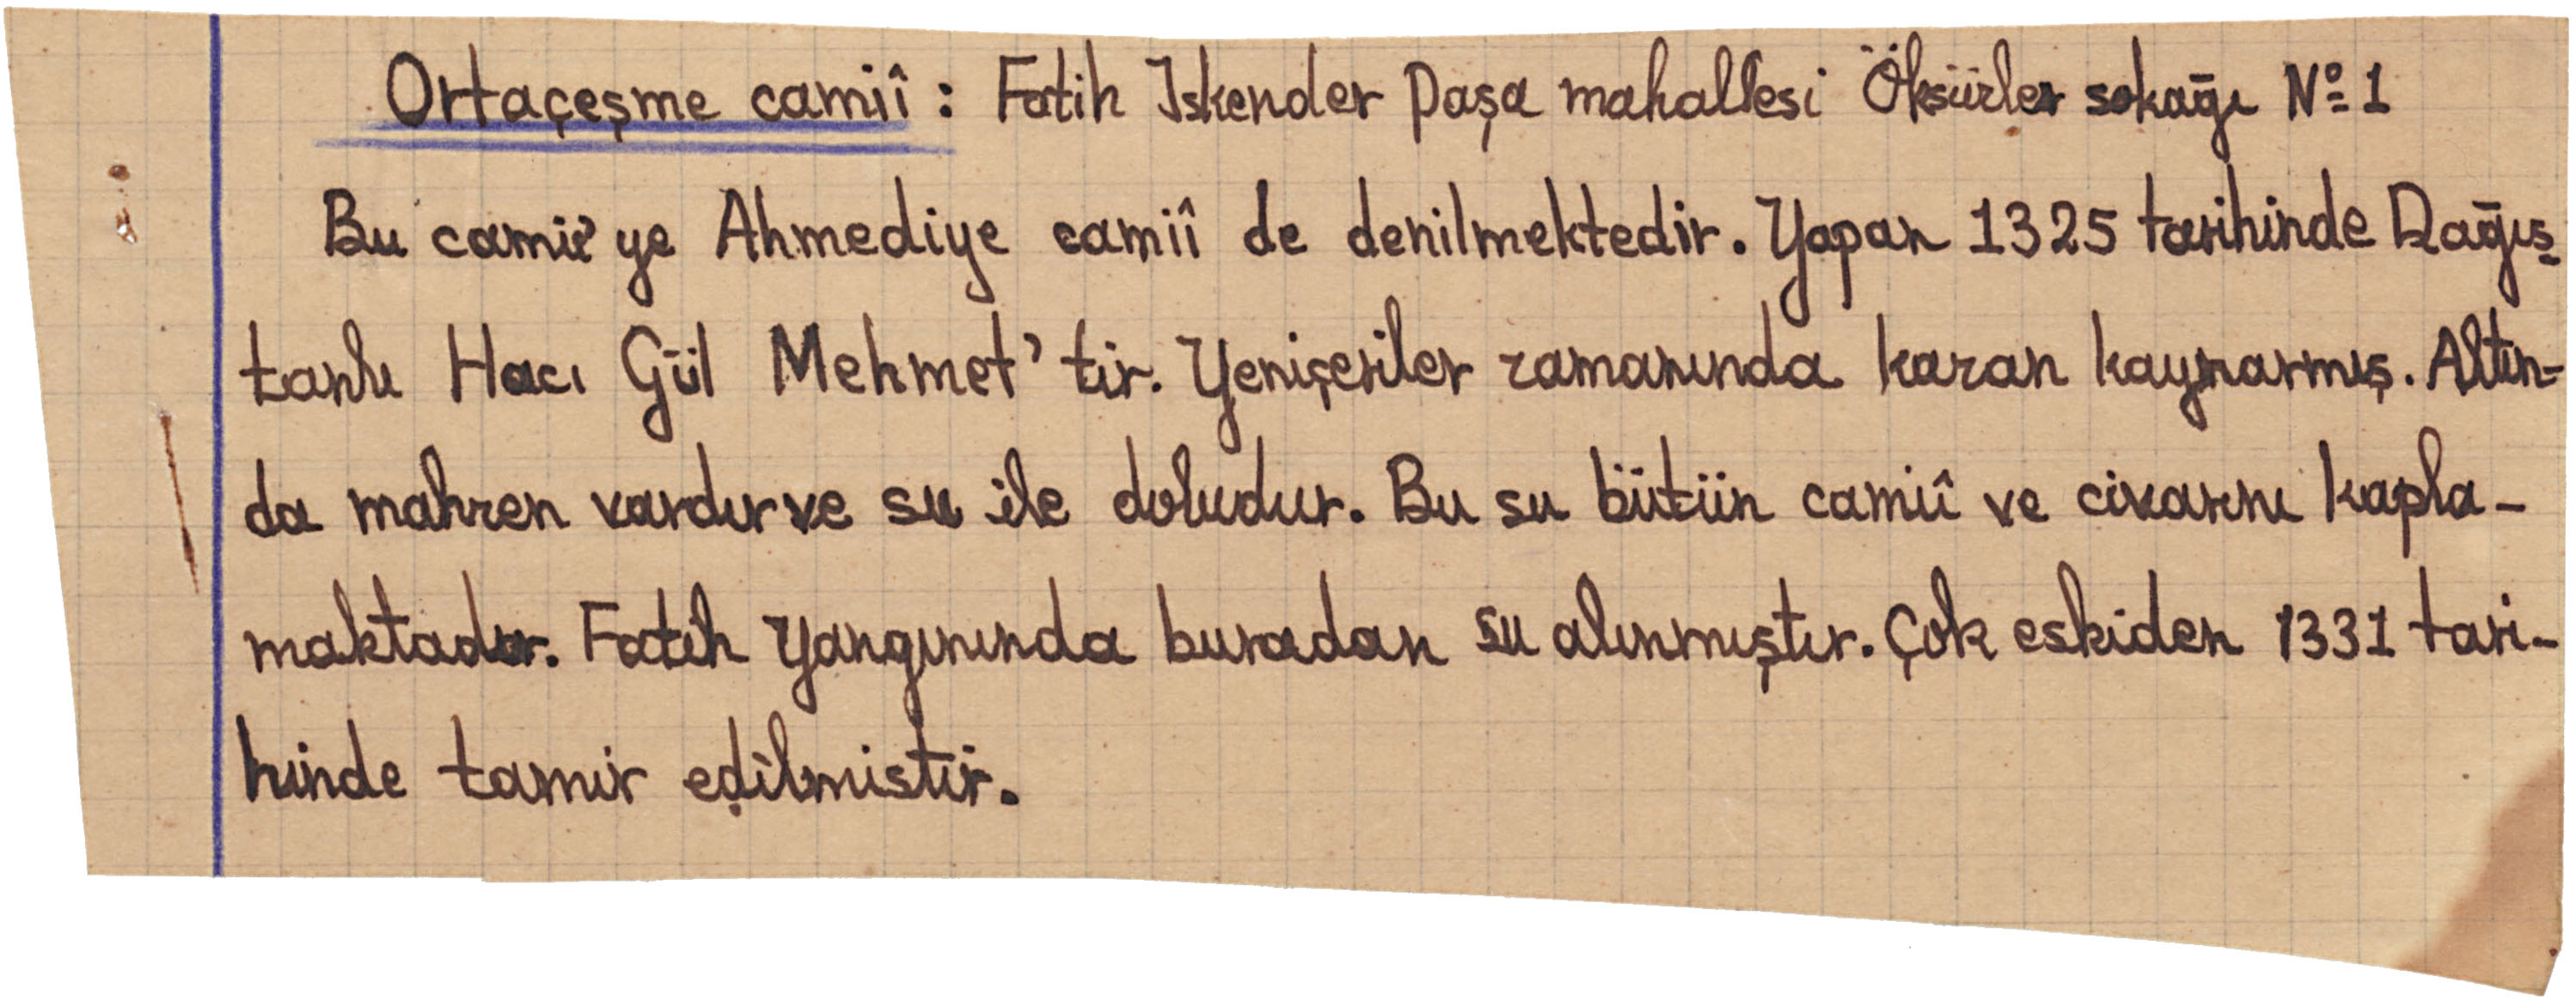 Ortaçeşme camiî : Fatih Iskender Paşa mahallesi Öksüzler sokağı Nº 1
Bu camii'ye Ahmediye camiî de denilmektedir. Yapan 1325 tarihinde Dağıs-
tanlı Hacı Gül Mehmet'tir. Yeniçeriler zamanında kazan kaynarmış. Altın-
da mahzen vardır ve su ile doludur. Bu su bütün camiî ve civarını kapla-
maktadır. Fatih yangınında buradan su alınmıştır. Çok eskiden 1331 tari-
hinde tamir edilmistir.